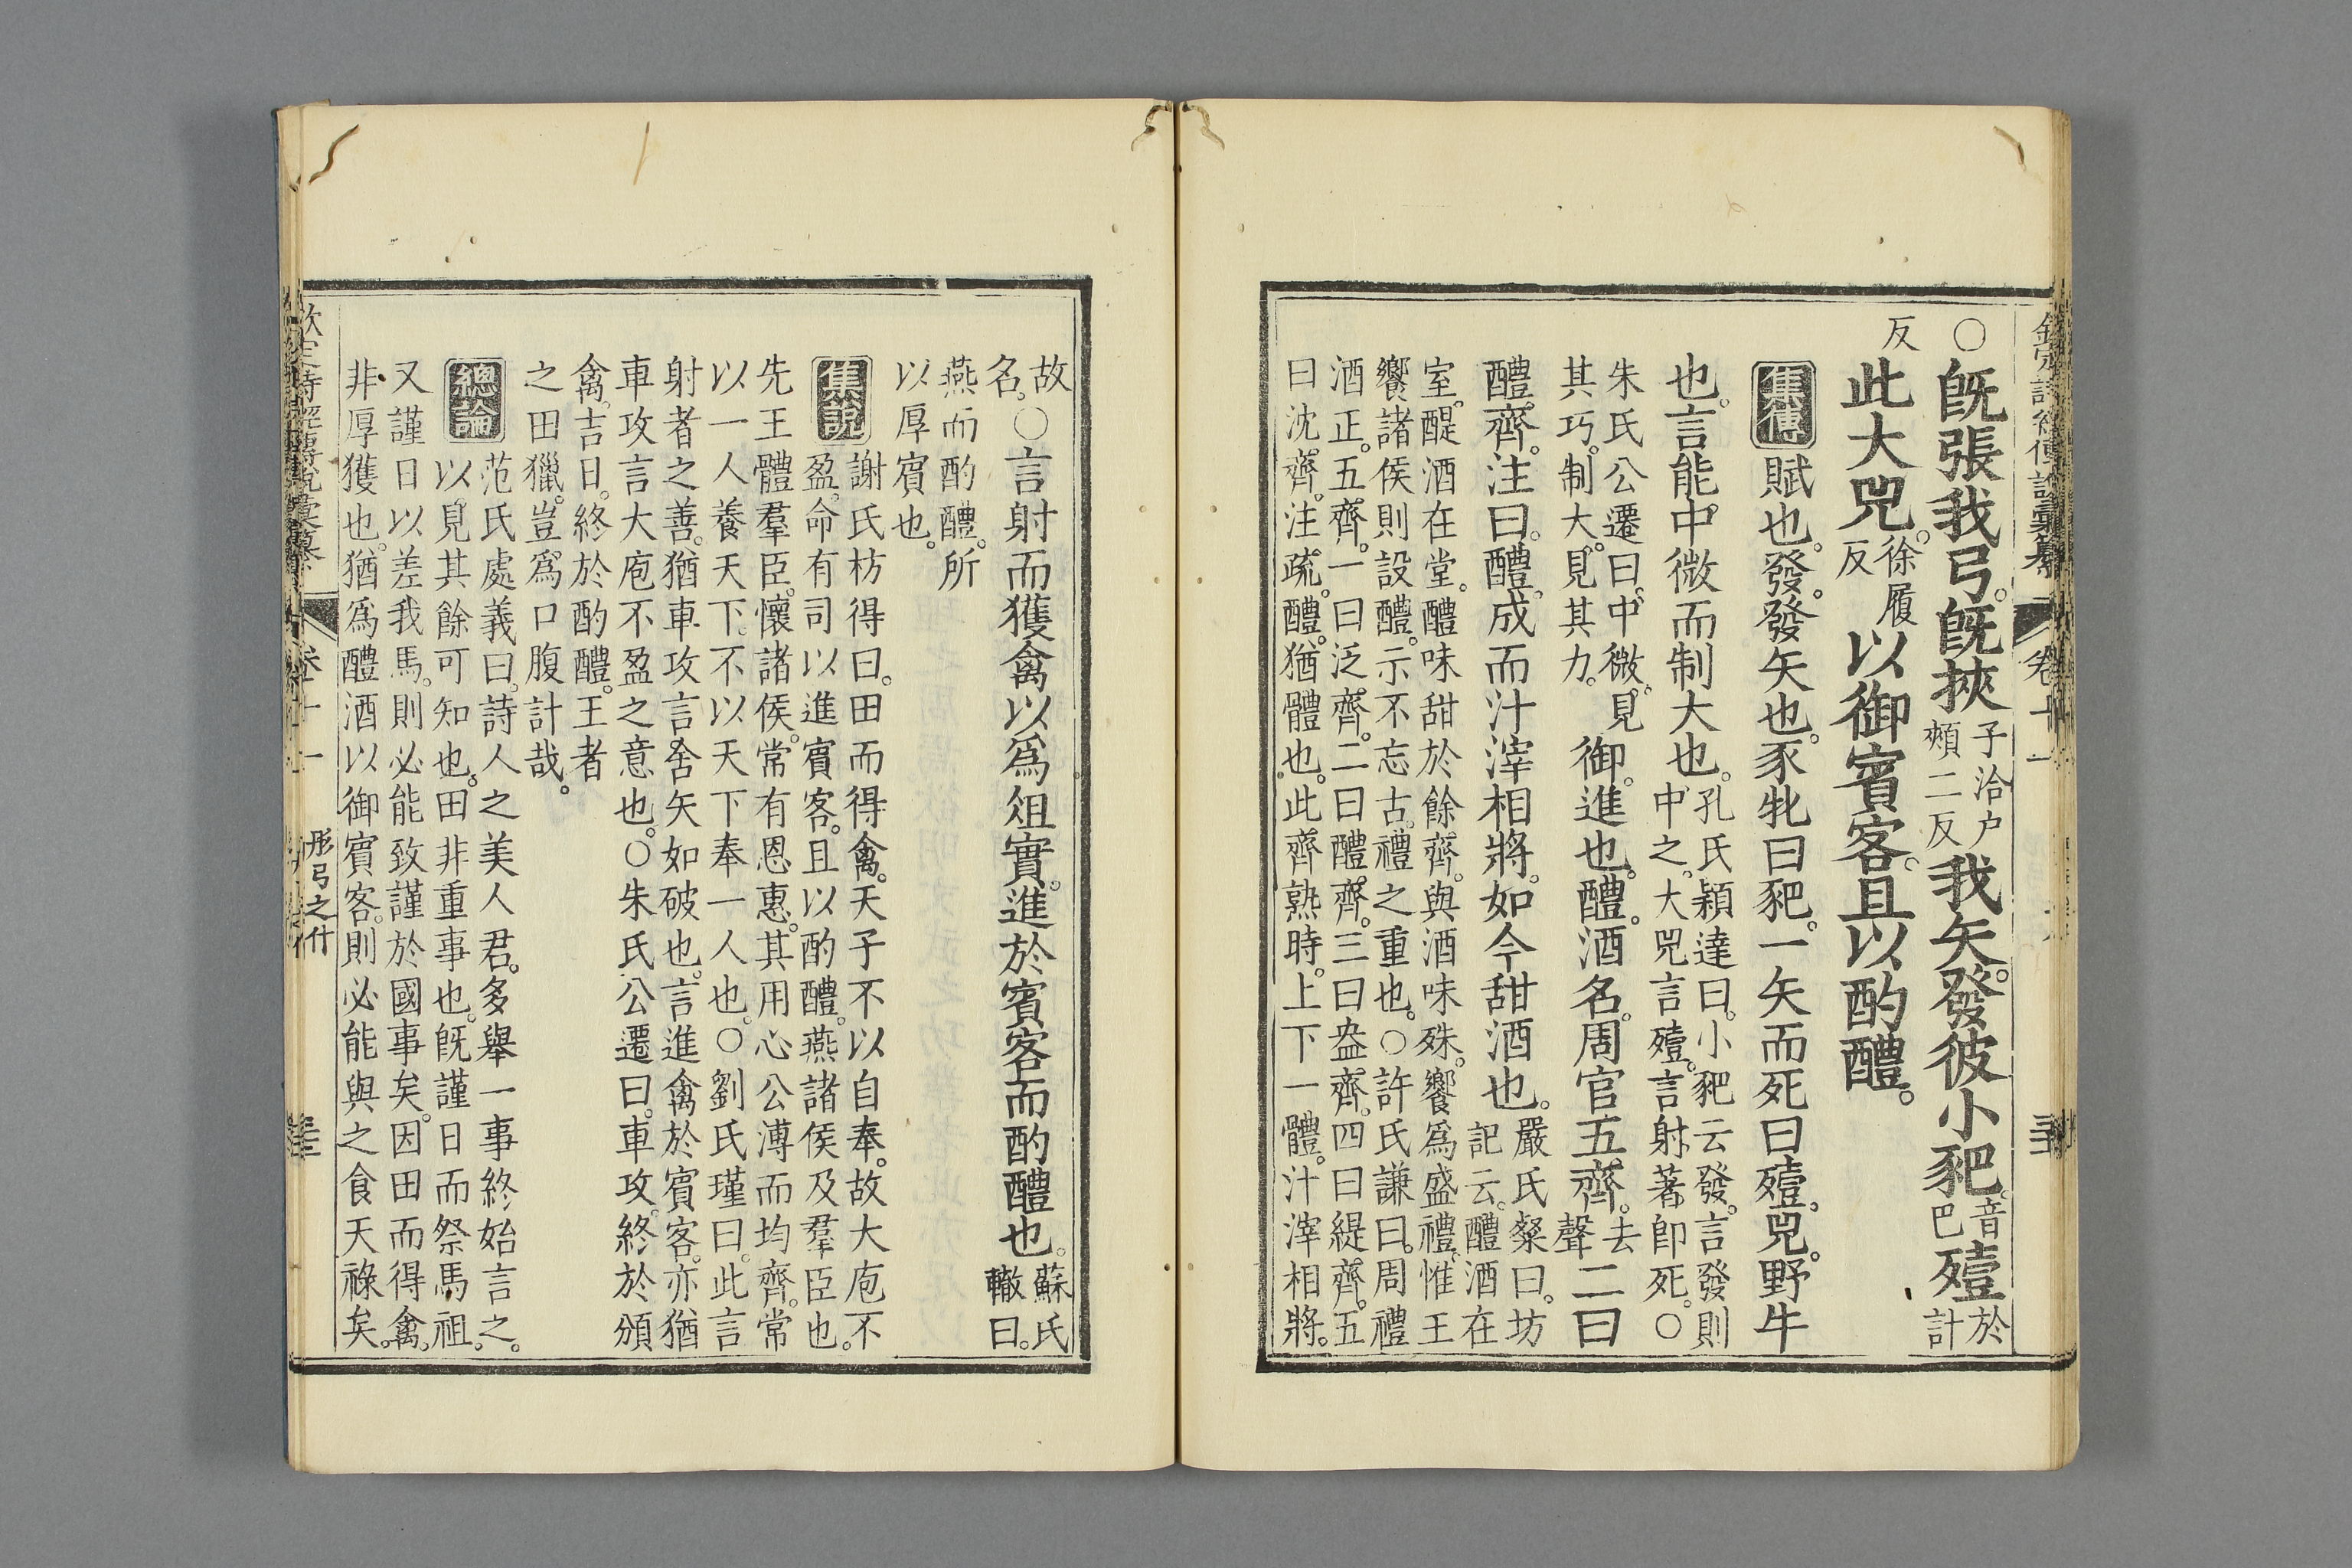 欽定詩經傳說彙纂　卷十一
○旣張我弓。旣挾子洽户頰二反我矢。發彼小豝。音巴殪於計
反此大兕。徐履反以御賓客。且以酌醴。
集傳　賦也。發。發矢也。豕牝曰豝。一矢而死曰殪。兕。野牛
也。言能中微而制大也。孔氏穎達曰。小豝云發。言發則
中之。大兕言殪。言射著卽死。○
朱氏公遷曰。中微。見
其巧。制大。見其力。御。進也。醴。酒名。周官五齊。去聲二曰
醴齊。注曰。醴。成而汁滓相將。如今甜酒也。嚴氏粲曰。坊
記云。醴酒在
室。醍酒在堂。醴味甜於餘齊。與酒味殊。饗爲盛禮。惟王
饗諸侯則設醴。示不忘古禮之重也。○許氏謙曰。周禮
酒正。五齊。一曰泛齊。二曰醴齊。三曰盎齊。四曰緹齊。五
曰沈齊。注疏。醴。猶體也。此齊熟時。上下一體。汁滓相將。
故
名。○言射而獲禽以爲俎實。進於賓客而酌醴也。蘇氏
轍曰。
燕而酌醴。所
以厚賓也。
集說　謝氏枋得曰。田而得禽。天子不以自奉。故大庖不
盈。命有司以進賓客。且以酌醴。燕諸侯及羣臣也。
先王體羣臣。懷諸侯。常有恩惠。其用心公溥而均齊。常
以一人養天下。不以天下奉一人也。○劉氏瑾曰。此言
射者之善。猶車攻言舍矢如破也。言進禽於賓客。亦猶
車攻言大庖不盈之意也。○朱氏公遷曰。車攻。終於頒
禽。吉日。終於酌醴。王者
之田獵。豈爲口腹計哉。
總論　范氏處義曰。詩人之美人君。多舉一事終始言之。
以見其餘可知也。田非重事也。旣謹日而祭馬祖。
又謹日以差我馬。則必能致謹於國事矣。因田而得禽。
非厚獲也。猶爲醴酒以御賓客。則必能與之食天祿矣。
欽定詩經傳說彙纂　卷十一　彤弓之什